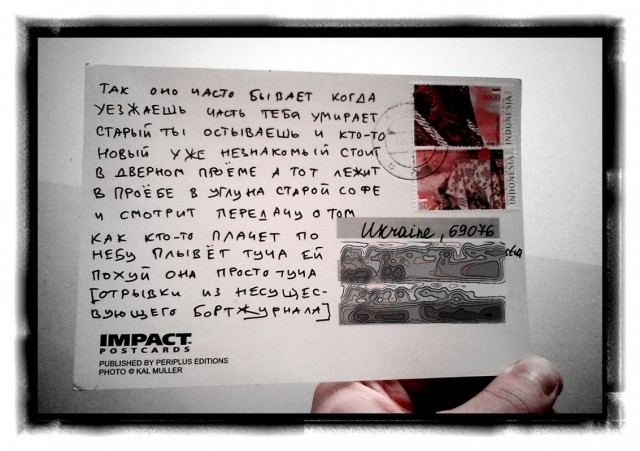 ТАК ОНО ЧАСТО БЫВАЕТ КОГДА
УЕЗЖАЕШЬ ЧАСТЬ ТЕБЯ УМИРАЕТ
СТАРЫЙ ТЫ ОСТЫВАЕШЬ И КТО-ТО
НОВЫЙ УЖЕ НЕЗНАКОМЫЙ СТОИТ
В ДВЕРНОМ ПРОЁМЕ А ТОТ ЛЕЖИТ
В ПРОЁБЕ В УГЛУ НА СТАРОЙ СОФЕ
И СМОТРИТ ПЕРЕДАЧУ О ТОМ
КАК КТО-ТО ПЛАЧЕТ ПО
НЕБУ ПЛЫВЁТ ТУЧА ЕЙ
ПОХУЙ ОНА ПРОСТО ТУЧА
[ОТРЫВКИ ИЗ НЕСУЩЕС-
ВУЮЩЕГО БОРТЖУРНАЛА]
INDONESIA
INDONESIA
Ukraine, 69076
IMPACT
POSTCARDS
PUBLISHED BY PERIPLUS EDITIONS
PHOTO © KAL MULLER